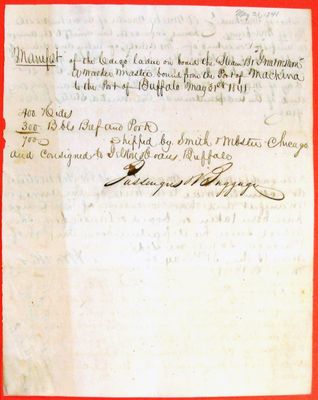 May 31 1841
Manifest of the Cargo laden on board the Steam Bt
Master bound from the Port of Mackina
to the Port of Buffalo May 31st 1841
400 Hides
300 Bbls Beef and Pork
700 Shipped by Smith & Webster Chicago
and Consigned to & Evans Buffalo
Passengers & Baggage